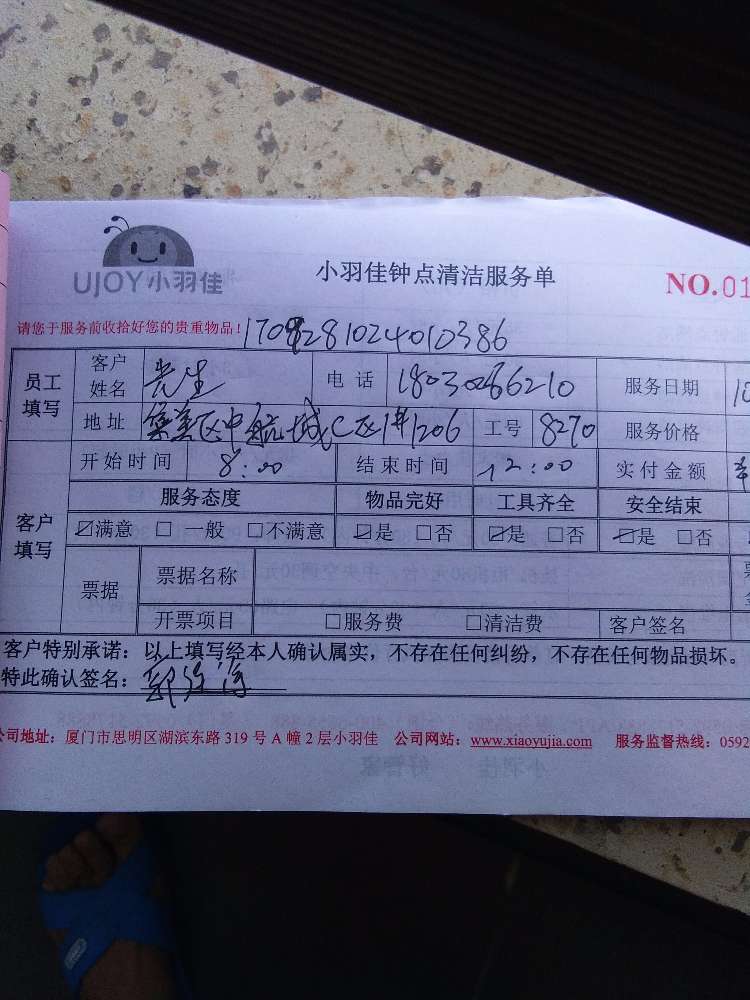 UJOY小羽佳 小羽佳钟点清洁服务单 NO.01
请您于服务前收拾好您的贵重物品! 1708281024010386
员工填写 客户姓名 先生 电话 18030266210 服务日期 10
地址 集美区中航城C区1#1206 工号 8270 服务价格
客户填写 开始时间 8:00 结束时间 12:00 实付金额
服务态度 物品完好 工具齐全 安全结束
☑满意 □一般 □不满意 ☑是 □否 ☑是 □否 ☑是 □否
票据 票据名称
开票项目 □服务费 □清洁费 客户签名
客户特别承诺：以上填写经本人确认属实，不存在任何纠纷，不存在任何物品损坏。
特此确认签名：
公司地址：厦门市思明区湖滨东路 319 号 A 幢 2 层小羽佳 公司网站：www.xiaoyujia.com 服务监督热线：0592